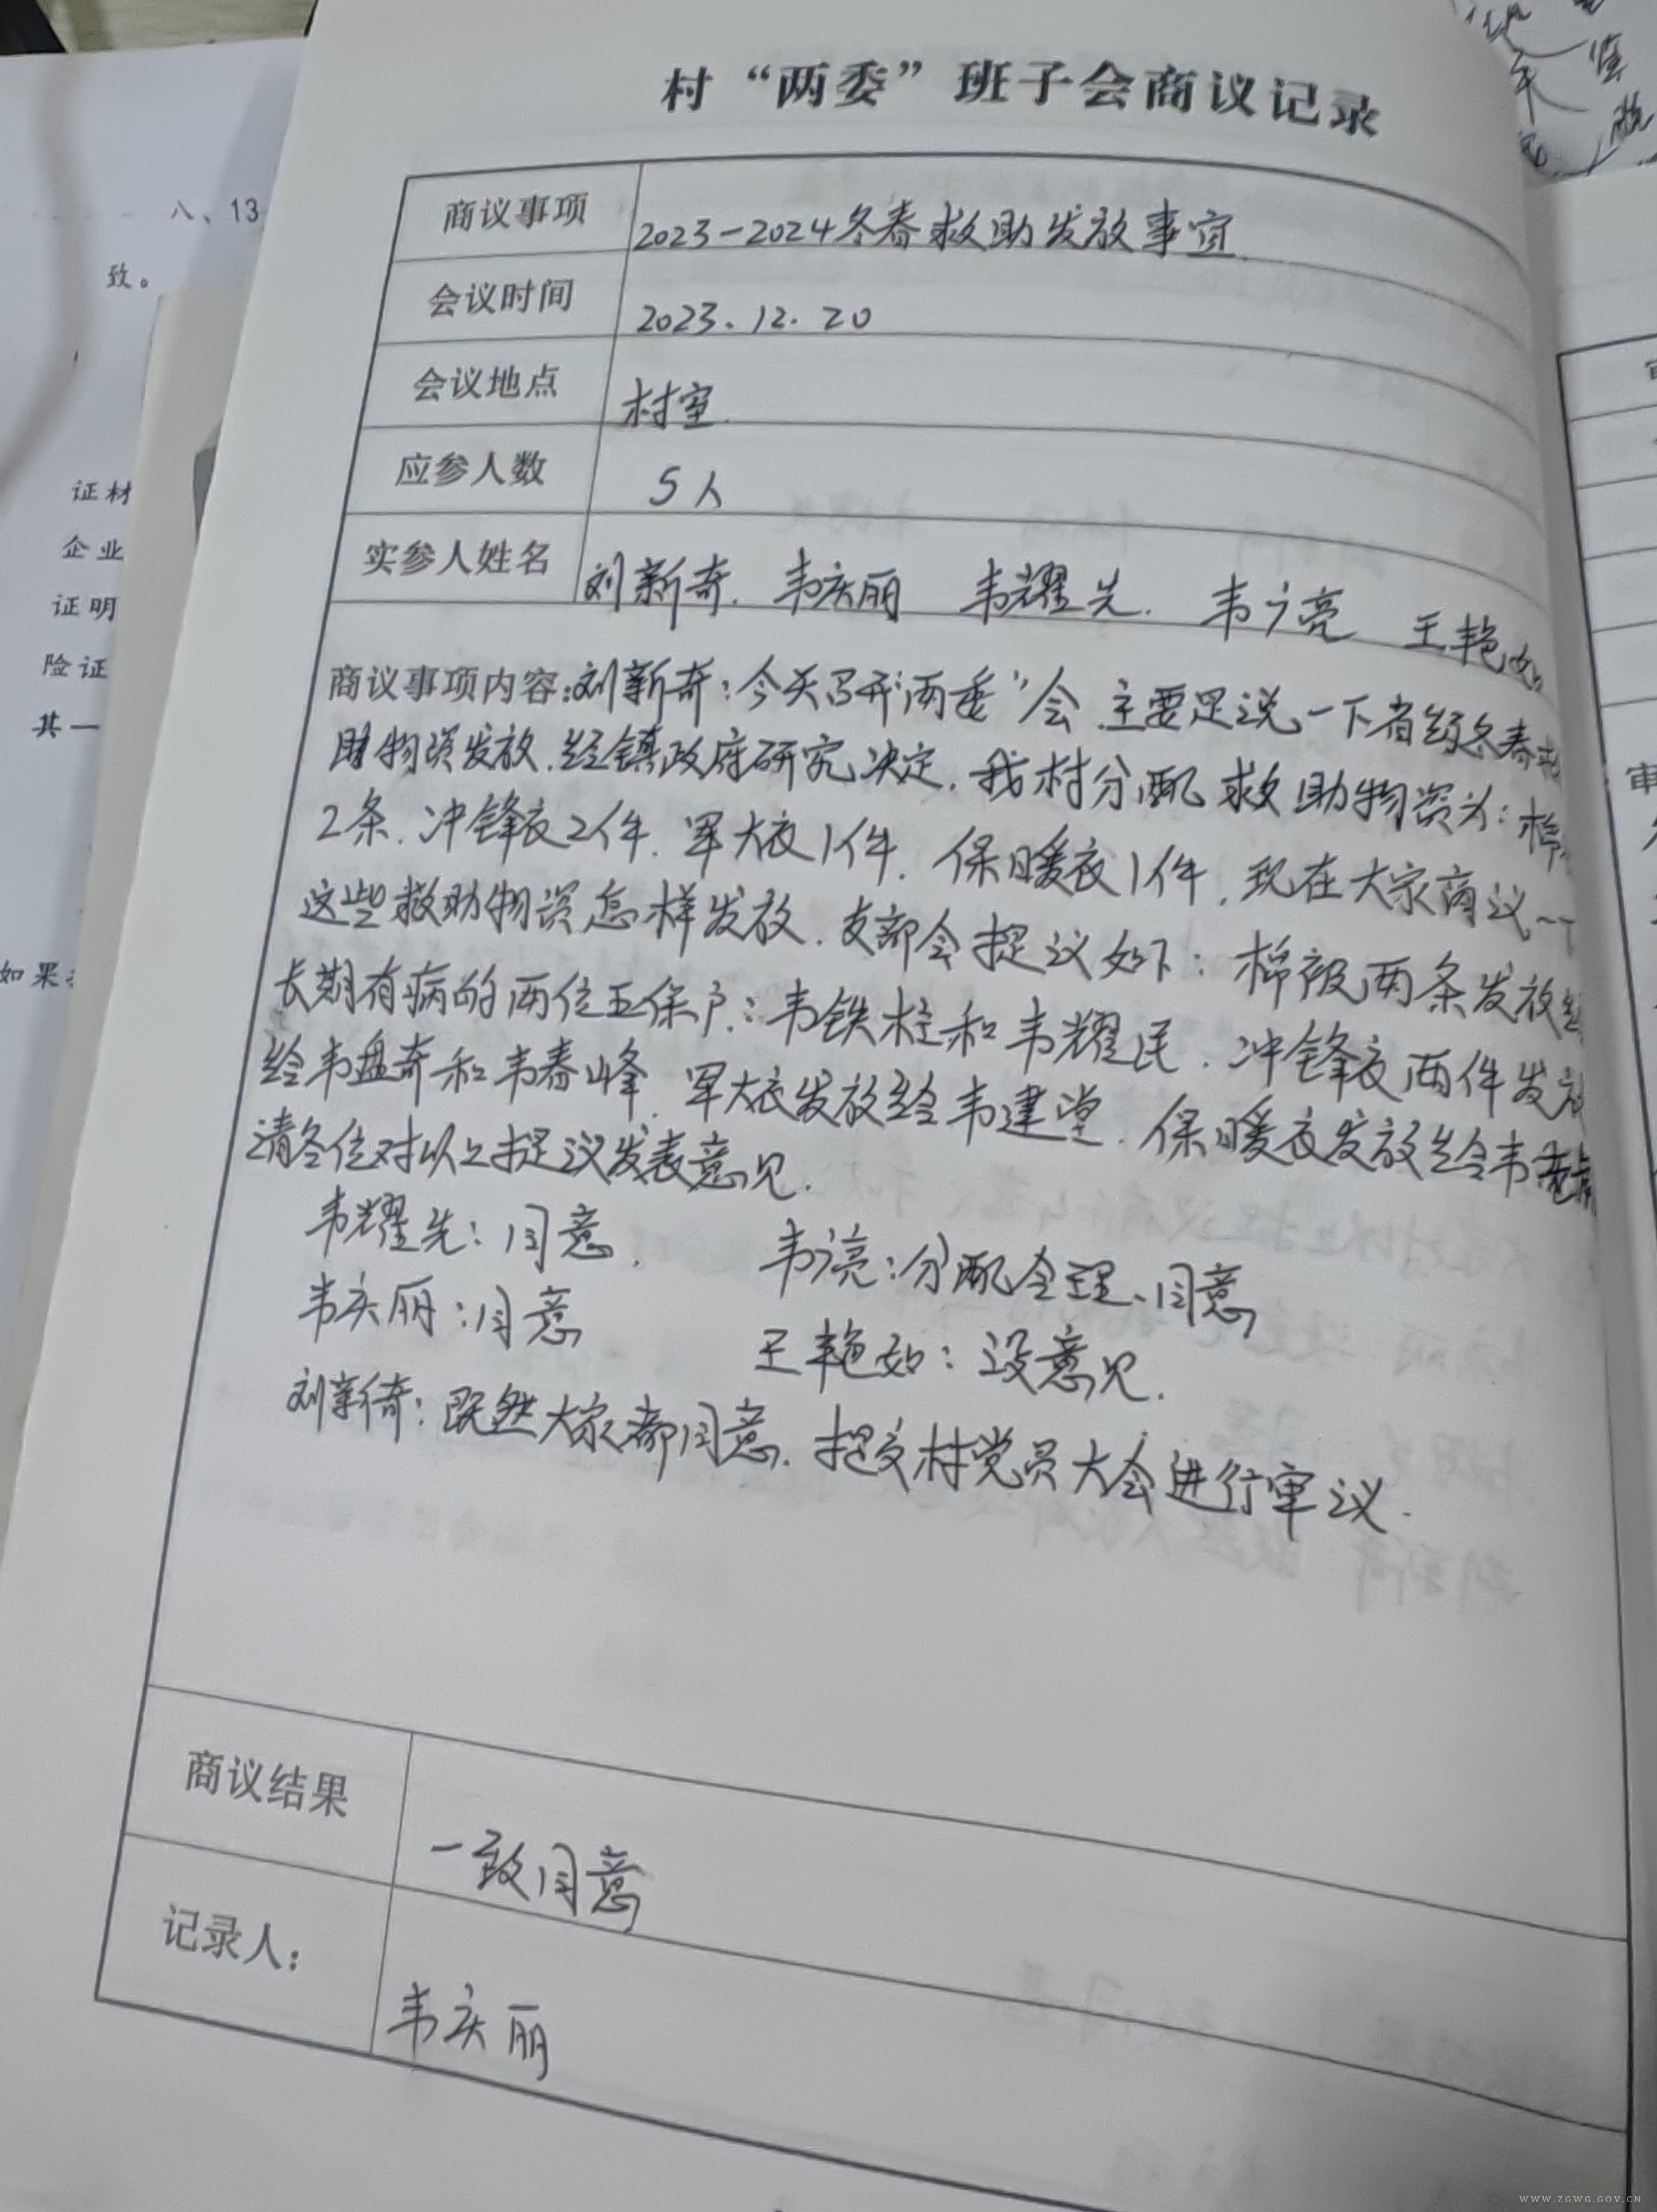 村“两委”班子会商议记录
商议事项 2023-2024冬春救助发放事宜
会议时间 2023.12.20
会议地点 村室
应参人数 5人
实参人姓名 刘新奇. 韦庆丽 韦耀先. 韦广亮 王艳如
商议事项内容:刘新奇:今天召开“两委”会.主要是说一下省级冬春救
助物资发放.经镇政府研究决定,我村分配救助物资为:棉
2条.冲锋衣2件.军大衣1件.保暖衣1件,现在大家商议一下
这些救助物资怎样发放.支部会提议如下:棉被两条发放给
长期有病的两位五保户:韦铁柱和韦耀民.冲锋衣两件发放
给韦盘奇和韦春峰.军大衣发放给韦建堂.保暖衣发放给韦
请各位对以上提议发表意见.
韦耀先:同意. 韦广亮:分配合理、同意
韦庆丽:同意 王艳如:没意见.
刘新奇:既然大家都同意.提交村党员大会进行审议.
商议结果 一致同意
记录人: 韦庆丽
八、13
致。
证材
企业
证明
险证
其一
如果
审
WWW.ZGWG.GOV.CN